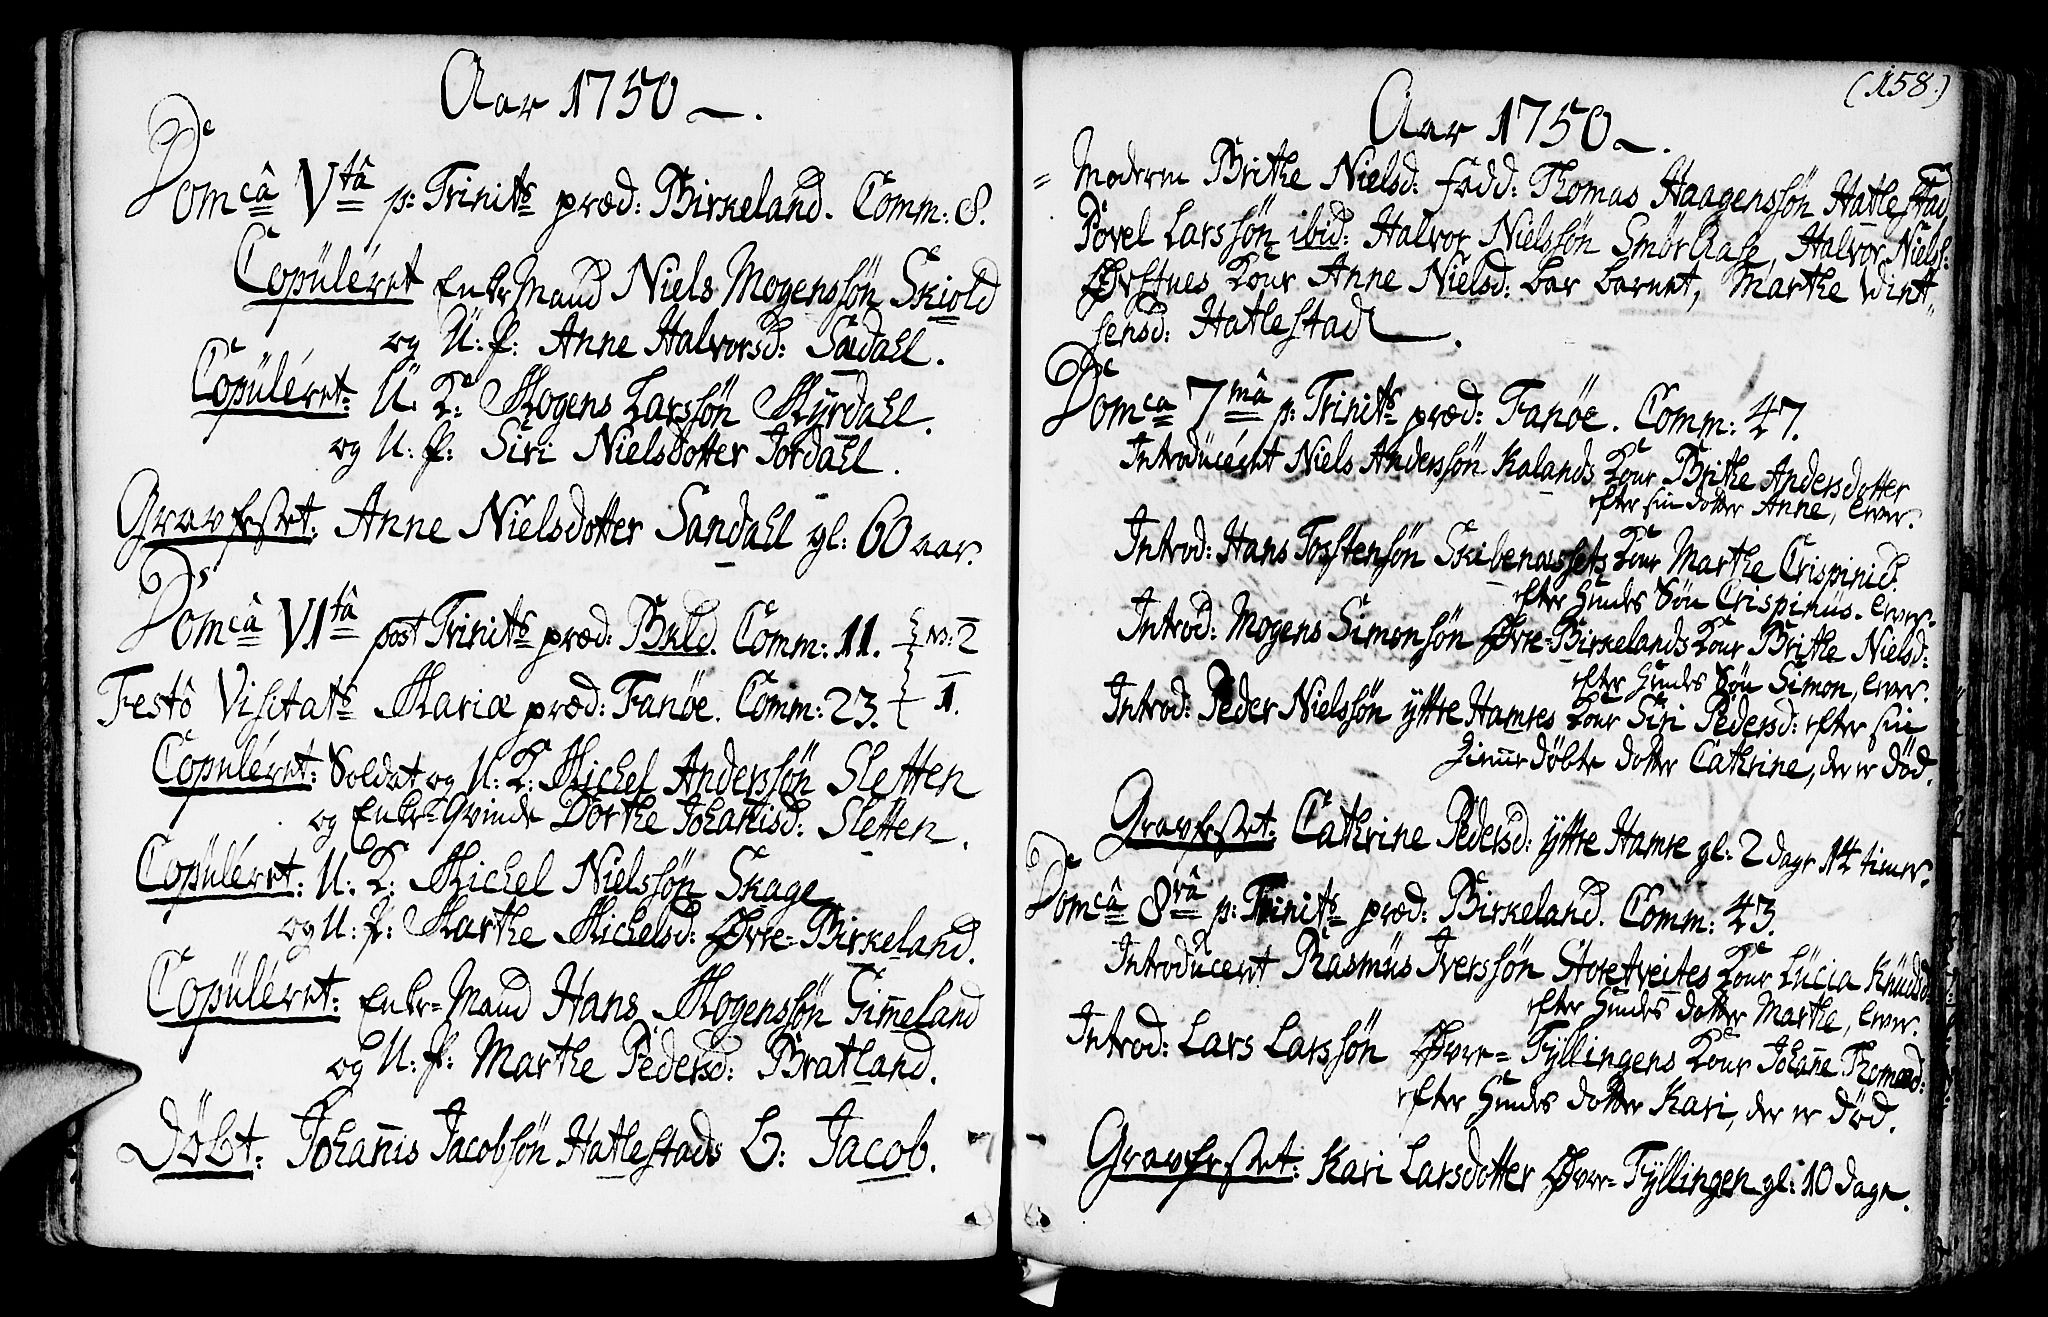 Aar 1750.
Domcâ Vtâ p: Trinits præd: Birkeland. Comm: 8.
Copuléret Enke Mand Niels Mogenssøn Skiold
og U: P: Anne Halvorsd: Sædahl.
Copuléret: U. K: Mogens Larssøn Myrdahl.
og U: P: Siri Nielsdotter Jordahl.
Gravfestet: Anne Nielsdotter Sandahl gl: 60 aar.
Domcâ VItâ post Trinits præd: Bkld. Comm: 11. No: 2
Festô Visitats Mariæ præd: Fanøe. Comm: 23. 1.
Copuléret: Soldat og U: K: Michel Anderssøn Sletten
og Enke-Qvinde Dorthe Johañisd: Sletten.
Copuléret: U. K: Michel Nielssøn Skage
og U: P: Marthe Michelsd: Øvre-Birkeland.
Copuléret: Enke-Mand Hans Mogenssøn Gim̄eland
og U: P: Marthe Pedersd: Bratland.
Døbt: Johañis Jacobsøn Hatlestads b: Jacob.
(158.)
Aar 1750.
= Moderen Brithe Nielsd: Fadd: Thomas Haagenssøn Hatlestad,
Povel Larssøn ibid: Halvor Nielssøn SmørAase, Halvor Niels:
Ørstues Kone Anne Nielsd: bar barnet, Marthe Vint„
sensd: Hatlestad.
Domca 7mâ p: Trinits præd: Fanøe. Comm: 47.
Introduceret Niels Anderssøn Kalands Kone Brithe Andersdotter
efter sin dotter Anne, lever.
Introd: Hans Tostensøn Skibenæssets Kone Marthe Crispinid.
efter hendes Søn Crispinus. lever.
Introd: Mogens Simonsøn Øvre-Birkelands Kone Brithe Nielsd:
efter hendes Søn Simon, lever.
Introd: Peder Nielssøn yttre Hamres Kone Siri Pedersd: efter sin
hiem̄edøbte dotter Cathrine, der er død.
Gravfestet: Cathrine Pedersd: yttre Hamre gl: 2 dage 14 timer.
Domcâ 8vâ p: Trinits præd: Birkeland. Comm: 43.
Introduceret Rasmus Iverssøn Storetveites Kone Lucia Knudsd:
efter hendes dotter Marthe, lever.
Introd: Lars Larssøn Øvre-Fyllingens Kone Johañe Thomæd:
efter hendes dotter Kari, der er død.
Gravfestet: Kari Larsdotter Øvre-Fyllingen gl: 10 dage.